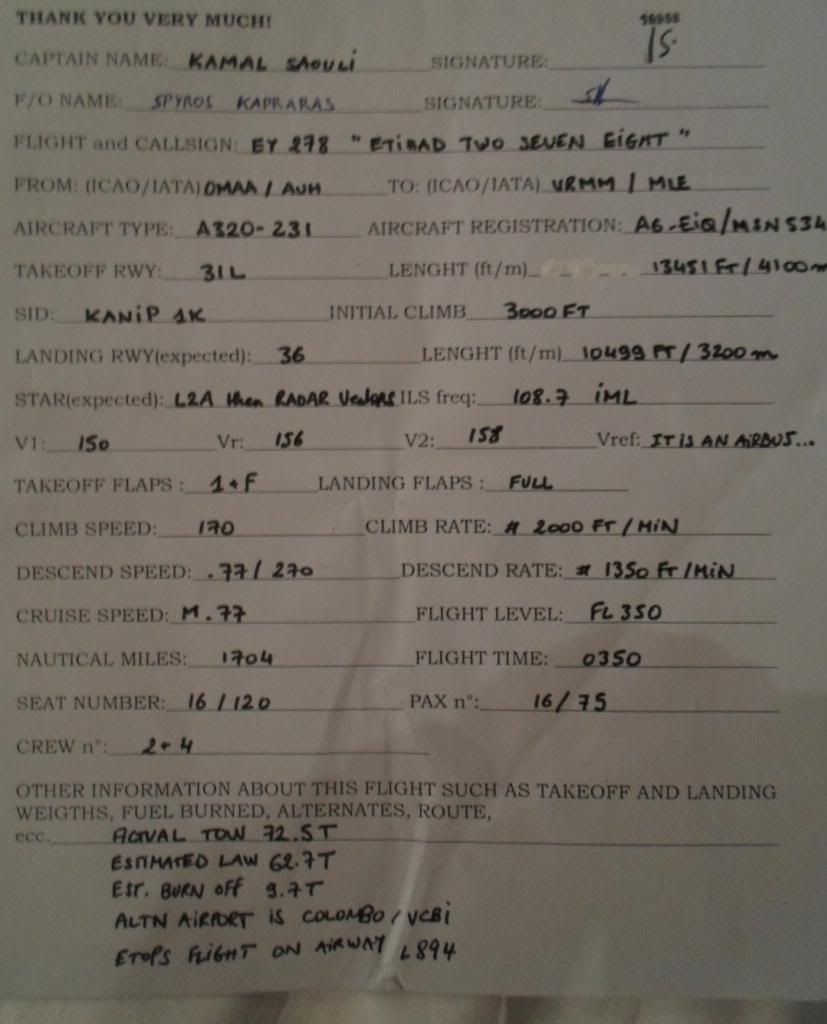 THANK YOU VERY MUCH!
16958
CAPTAIN NAME: KAMAL SAOULI SIGNATURE:
F/O NAME: SPYROS KAPRARAS SIGNATURE:
FLIGHT and CALLSIGN: EY 278 "ETIHAD TWO SEVEN EIGHT"
FROM: (ICAO/IATA) OMAA / AUH TO: (ICAO/IATA) VRMM / MLE
AIRCRAFT TYPE: A320-231 AIRCRAFT REGISTRATION: A6-EiQ/MSN534
TAKEOFF RWY: 31L LENGHT (ft/m) 13451 Ft / 4100m
SID: KANiP 1K INITIAL CLIMB 3000 FT
LANDING RWY(expected): 36 LENGHT (ft/m) 10499 FT / 3200 m
STAR(expected): L2A then RADAR Vectors ILS freq: 108.7 iML
V1: 150 Vr: 156 V2: 158 Vref: IT iS AN AiRBUS...
TAKEOFF FLAPS : 1+F LANDING FLAPS : FULL
CLIMB SPEED: 170 CLIMB RATE: # 2000 FT / MiN
DESCEND SPEED: .77/ 270 DESCEND RATE: # 1350 Ft / MiN
CRUISE SPEED: M .77 FLIGHT LEVEL: FL 350
NAUTICAL MILES: 1704 FLIGHT TIME: 0350
SEAT NUMBER: 16 / 120 PAX n°: 16/ 75
CREW n°: 2+4
OTHER INFORMATION ABOUT THIS FLIGHT SUCH AS TAKEOFF AND LANDING
WEIGTHS, FUEL BURNED, ALTERNATES, ROUTE,
ecc. ACTUAL TOW 72.5T
ESTIMATED LAW 62.7T
EST. BURN OFF 9.7T
ALTN AiRPORT iS COLOMBO / VCBi
ETOPS FLiGHT ON AiRWAY L894